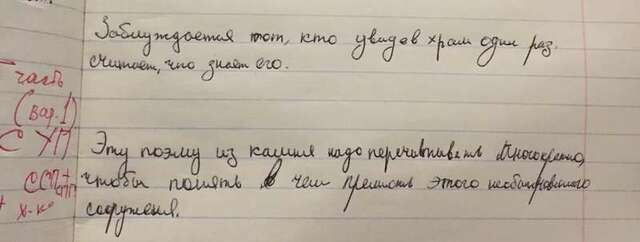 Заблуждается тот, кто увидев храм один раз.
считает, что знает его.
часть
(Вар. 1)
С ХП
ССП+
Эту поэму из камня надо перечитывать многократно,
чтобы понять в чем прелесть этого необычайного
сооружения.